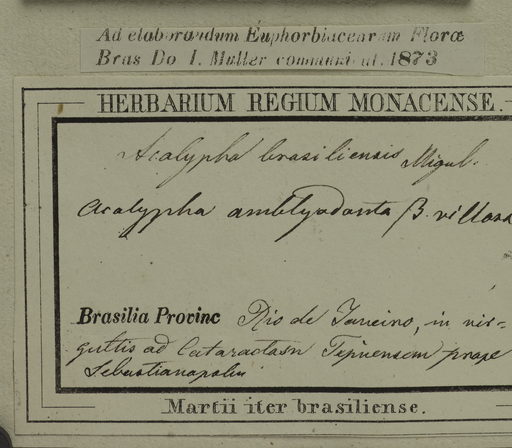 Ad elaborandum Euphorbiacearum Floræ
Bras Do I. Muller communicat. 1873
HERBARIUM REGIUM MONACENSE.
Acalypha brasiliensis Miqul.
Acalypha amblyodonta β. villosa
Brasilia Provinc Rio de Janeiro, in vir=
gultis ad Cataractam Tijucensem prope
Sebastianopolin
Martii iter brasiliense.